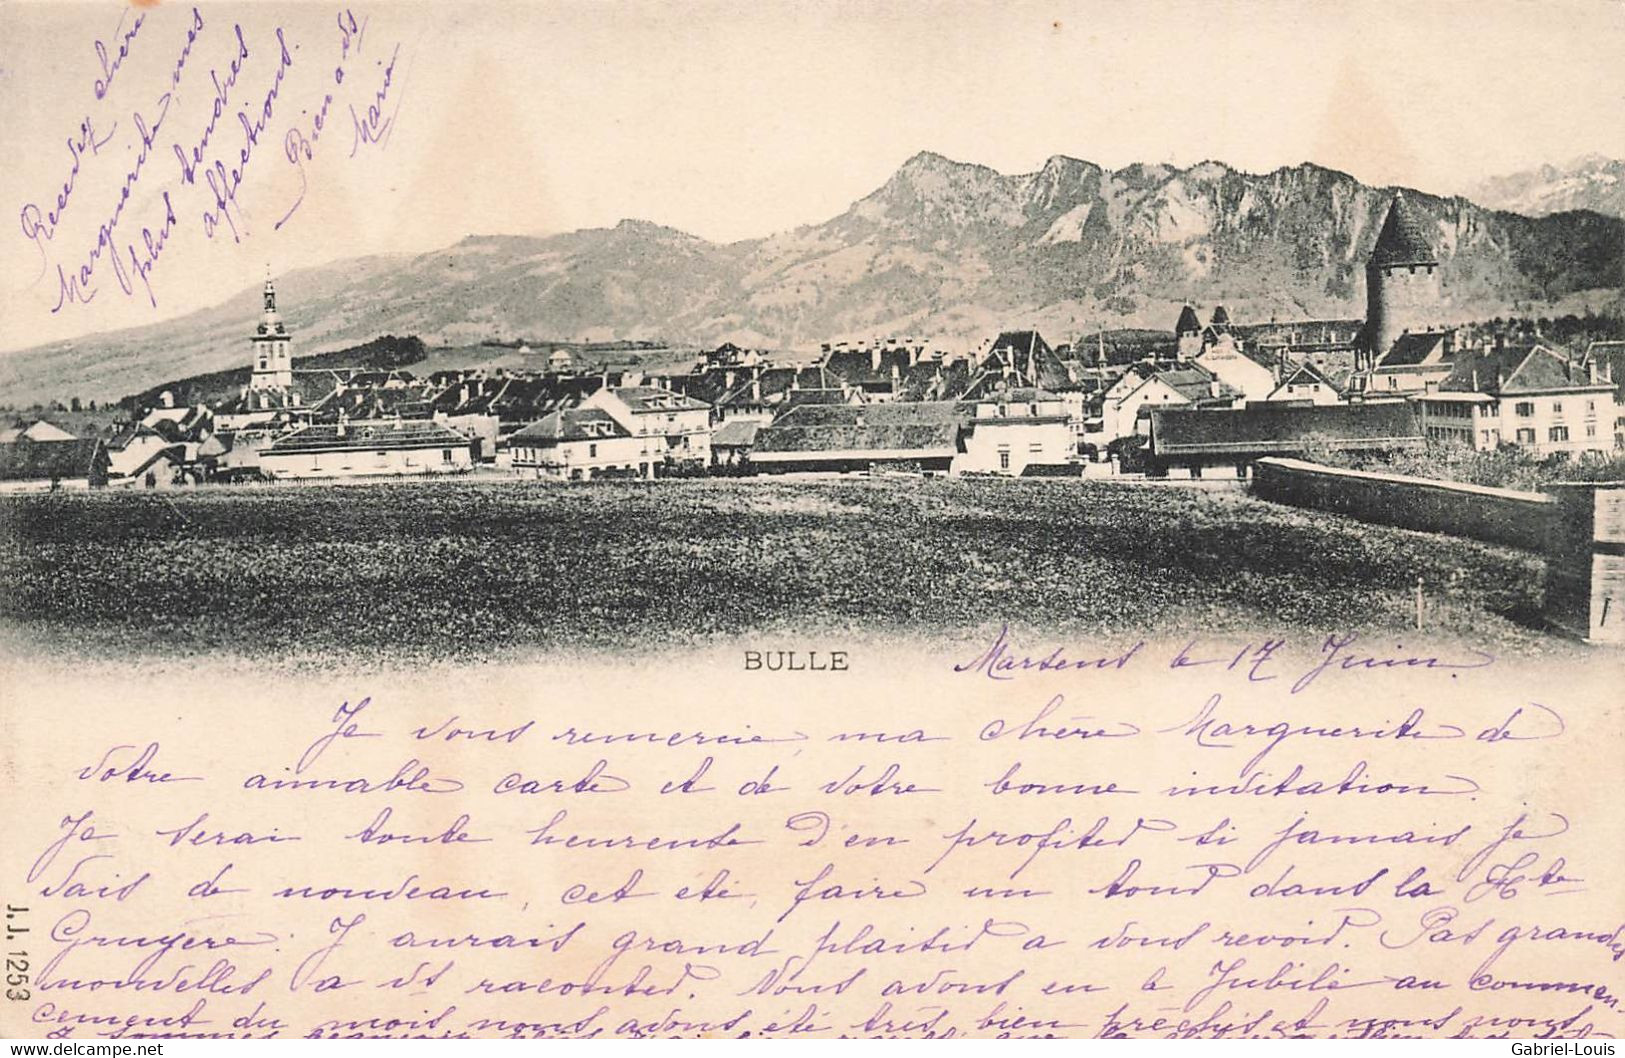 Recevez chère
Marguerite, mes
plus tendres
affections.
Bien a vs
Maria
BULLE
Marsens le 17 Juin.
Je vous remercie, ma chère Marguerite de
votre aimable carte et de votre bonne invitation.
Je serai toute heureuse d'en profiter si jamais je
vais de nouveau, cet été, faire un tour dans la Hte
Gruyère. J'aurais grand plaisir a vous revoir. Pas grandes
nouvelles a vs raconter. Nous avons eu le Jubilé au commen-
cement du mois nous avons été très bien prêchés et nous nous
J.J. 1253
delcampe.net
Gabriel-Louis